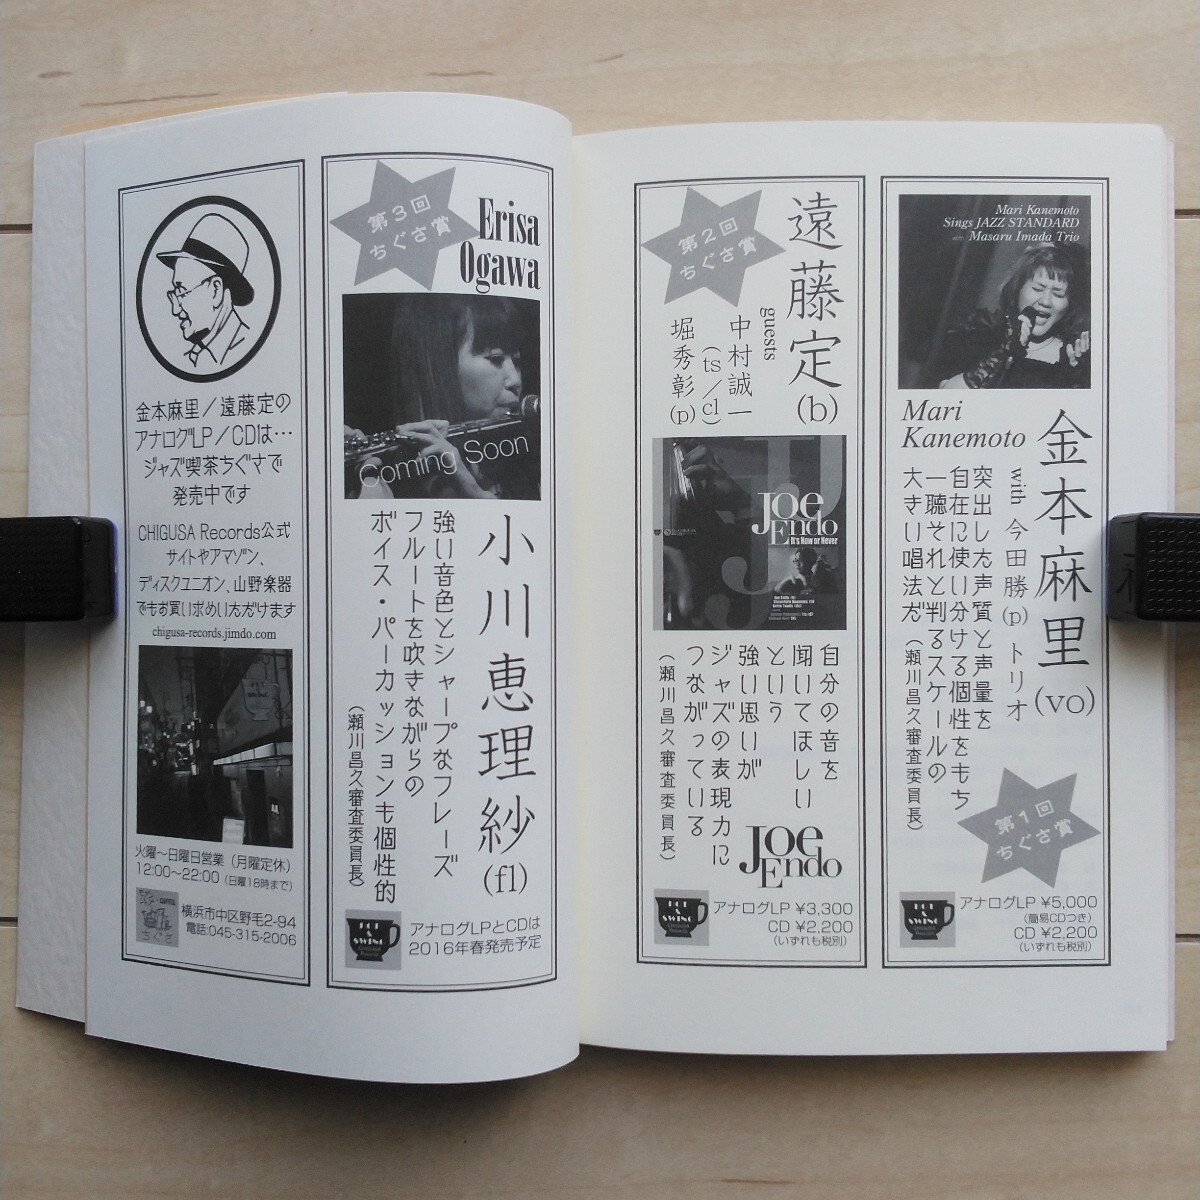 Mari Kanemoto
Sings JAZZ STANDARD
Masaru Imada Trio
Mari
Kanemoto
金本麻里(vo)
with 今田勝(p) トリオ
突出した声質と声量を
自在に使い分ける個性をもち
一聴それと判るスケールの
大きい唱法だ
(瀬川昌久審査委員長)
第1回
ちぐさ賞
HOT
&
SWING
アナログLP ¥5,000
(簡易CDつき)
CD ¥2,200
(いずれも税別)
第2回
ちぐさ賞
遠藤定(b)
guests
中村誠一
(ts/cl)
堀秀彰(p)
JOE
ENDO
It's Now or Never
自分の音を
聞いてほしい
という
強い思いが
ジャズの表現力に
つながっている
(瀬川昌久審査委員長)
JOE
ENDO
HOT
&
SWING
アナログLP ¥3,300
CD ¥2,200
(いずれも税別)
第3回
ちぐさ賞
Erisa
Ogawa
Coming Soon
小川恵理紗(fl)
強い音色とシャープなフレーズ
フルートを吹きながらの
ボイス・パーカッションも個性的
(瀬川昌久審査委員長)
HOT
&
SWING
アナログLPとCDは
2016年春発売予定
金本麻里/遠藤定の
アナログLP/CDは…
ジャズ喫茶ちぐさで
発売中です
CHIGUSA Records公式
サイトやアマゾン、
ディスクユニオン、山野楽器
でもお買い求めいただけます
chigusa-records.jimdo.com
火曜〜日曜日営業(月曜定休)
12:00〜22:00(日曜18時まで)
ちぐさ
横浜市中区野毛2-94
電話:045-315-2006